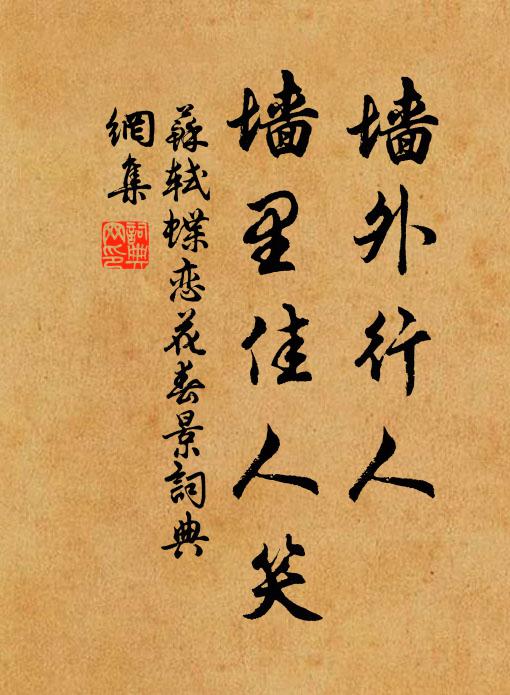 墙外行人
墙里佳人笑
蘇軾蝶恋花春景詞典
網集
詞典
网印